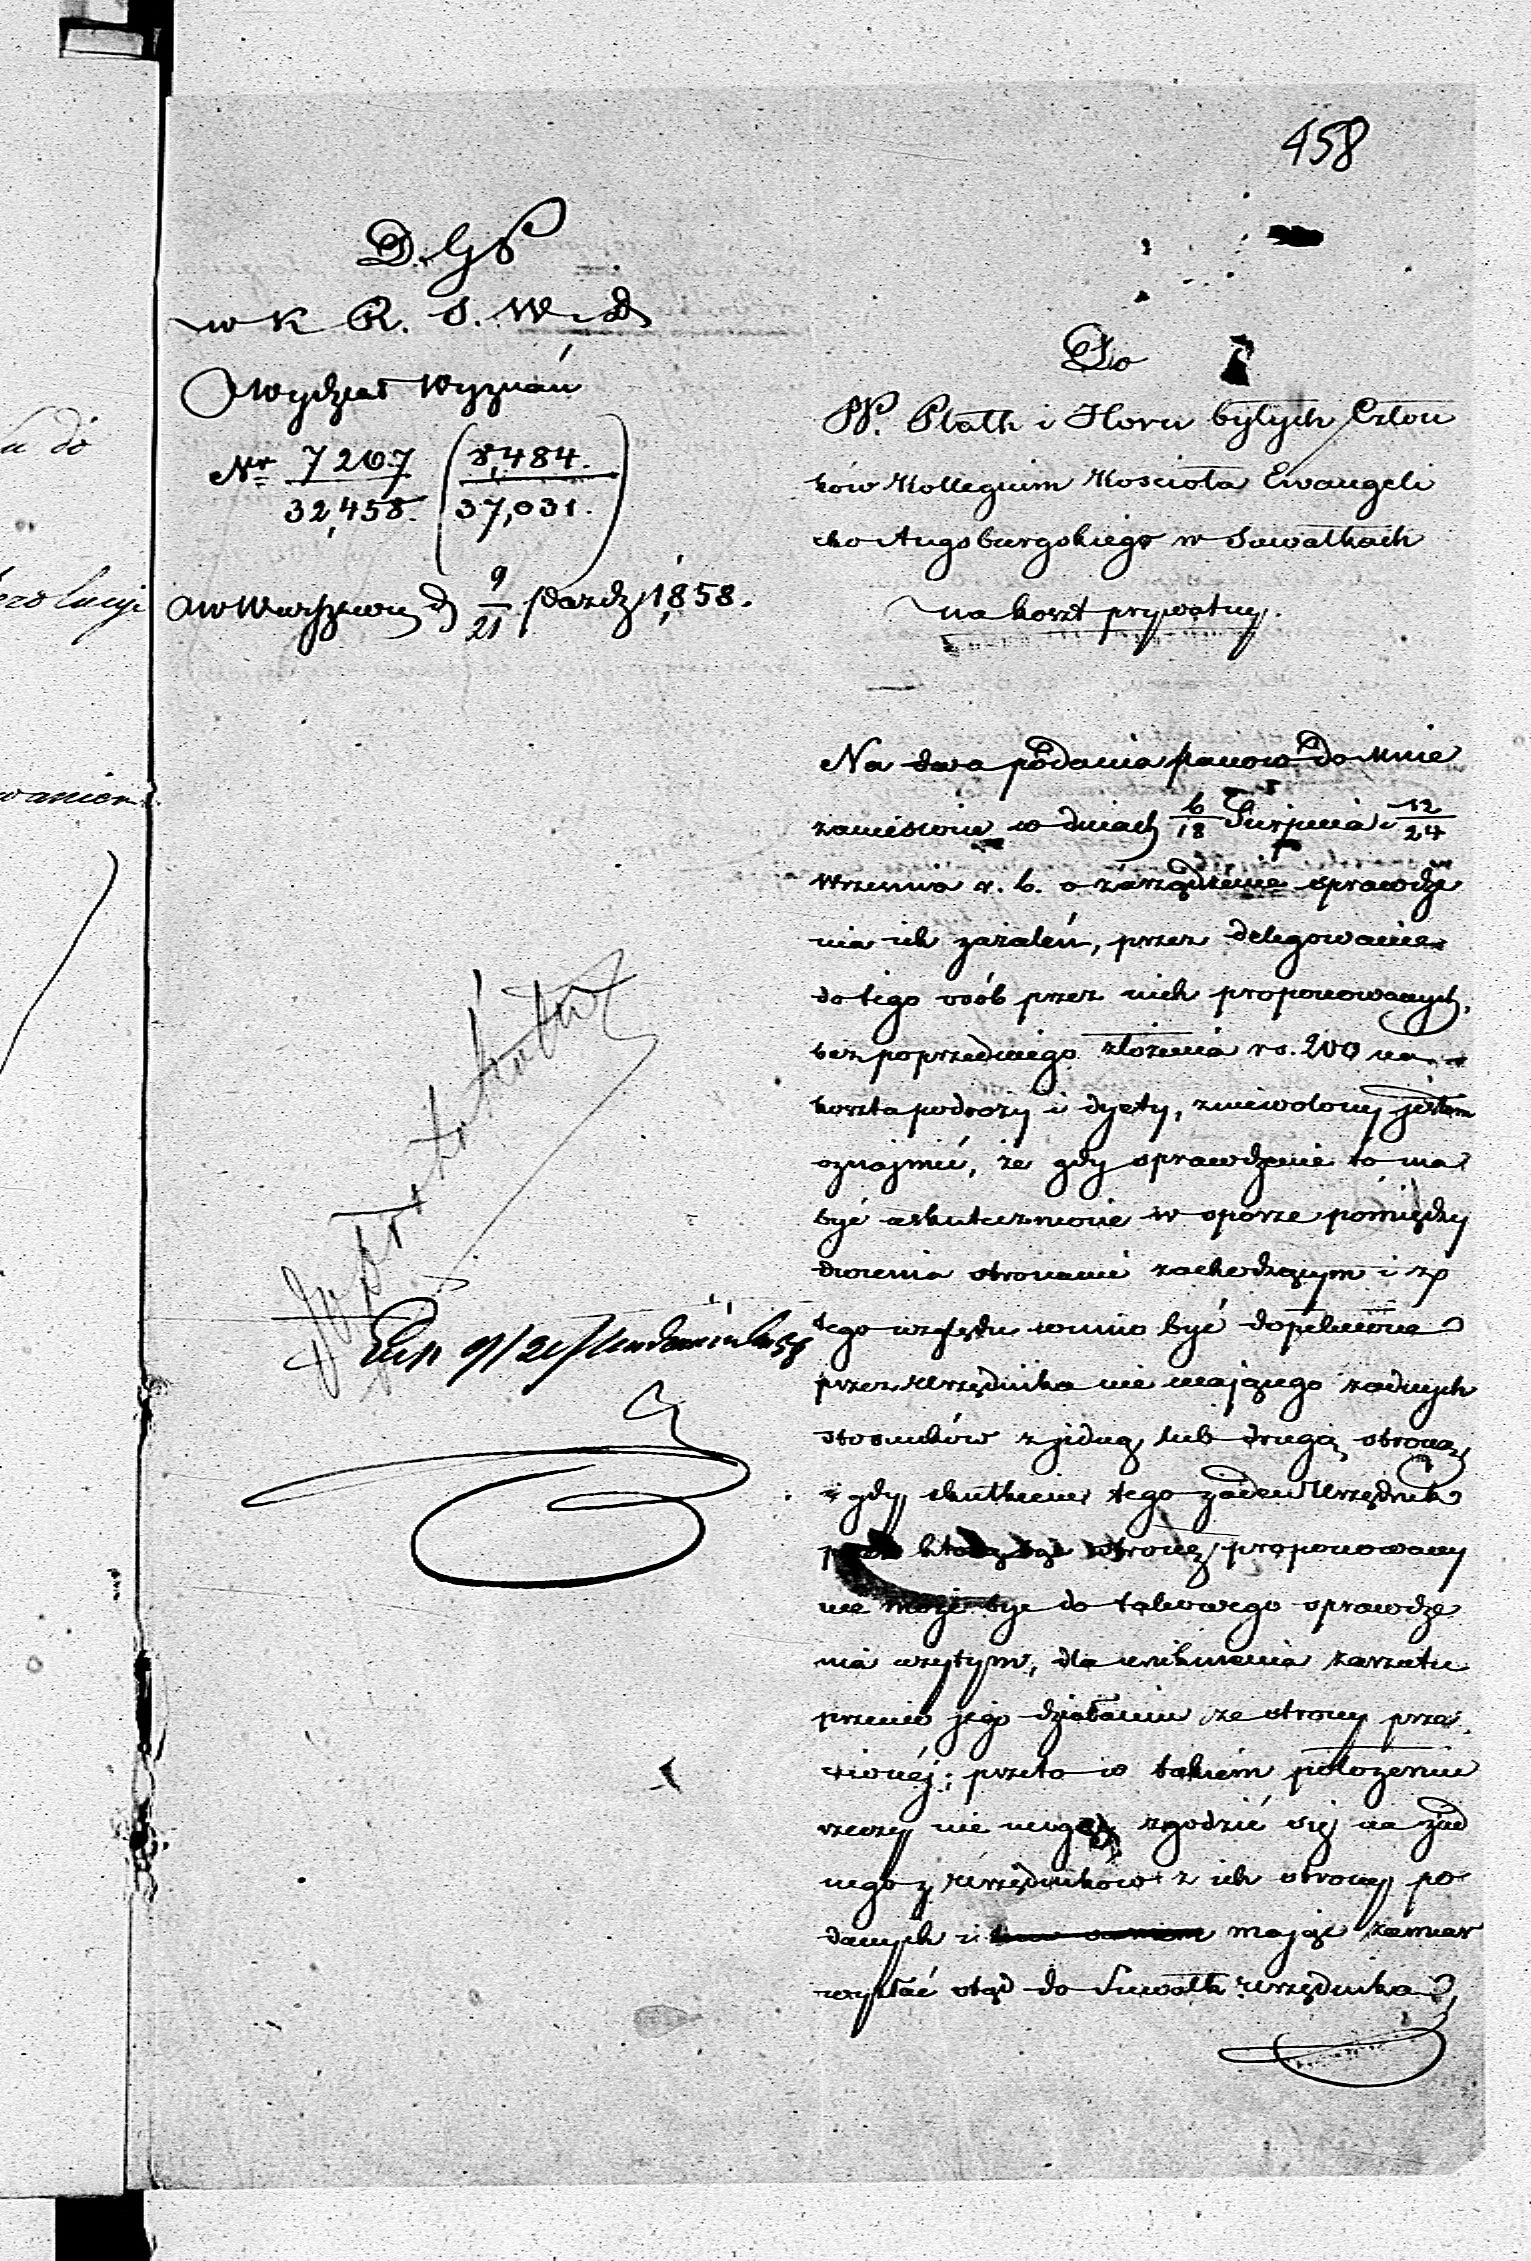 458
D. G P
w K R. S. W. i D
Wydział Wyznań
Nr 7207 (8,484.
32,458. 37,031.)
w Warszawie d 9/21 Paźdz 1858.
Do
W. Plath i Horn byłych Człon
ków Kollegium Kościoła Ewangeli
cko Augsburgskiego w Suwałkach
na koszt prywatny.
Na dwa podania panów do mnie
zaniesione w dniach 6/18 Sierpnia i 12/24
Września r. b. o zarządzenie sprawdze
nia ich zażaleń, przez delegowanie
do tego osób przez nich proponowanych,
bez poprzedniego złożenia rs. 200 na
koszta podróży i dyety, zniewolony jestem
oznajmić, że gdy sprawdzenie to ma
być uskutecznione w sporze pomiędzy
dwiema stronami zachodzącym i z
tego względu winno być dopełnione
przez urzędnika nie mającego żadnych
stosunków z jedną lub drugą stroną
i gdy skutkiem tego żaden Urzędnik
przez stronę proponowany
nie może być do takowego sprawdze
nia użytym, dla uniknienia zarzutu
przeciw jego działaniu ze strony prze
ciwnéj; przeto w takiém położeniu
rzeczy nie mogę zgodzić się na żad
nego z urzędników z ich strony po
danych i mając zamiar
wysłać stąd do Suwałk urzędnika